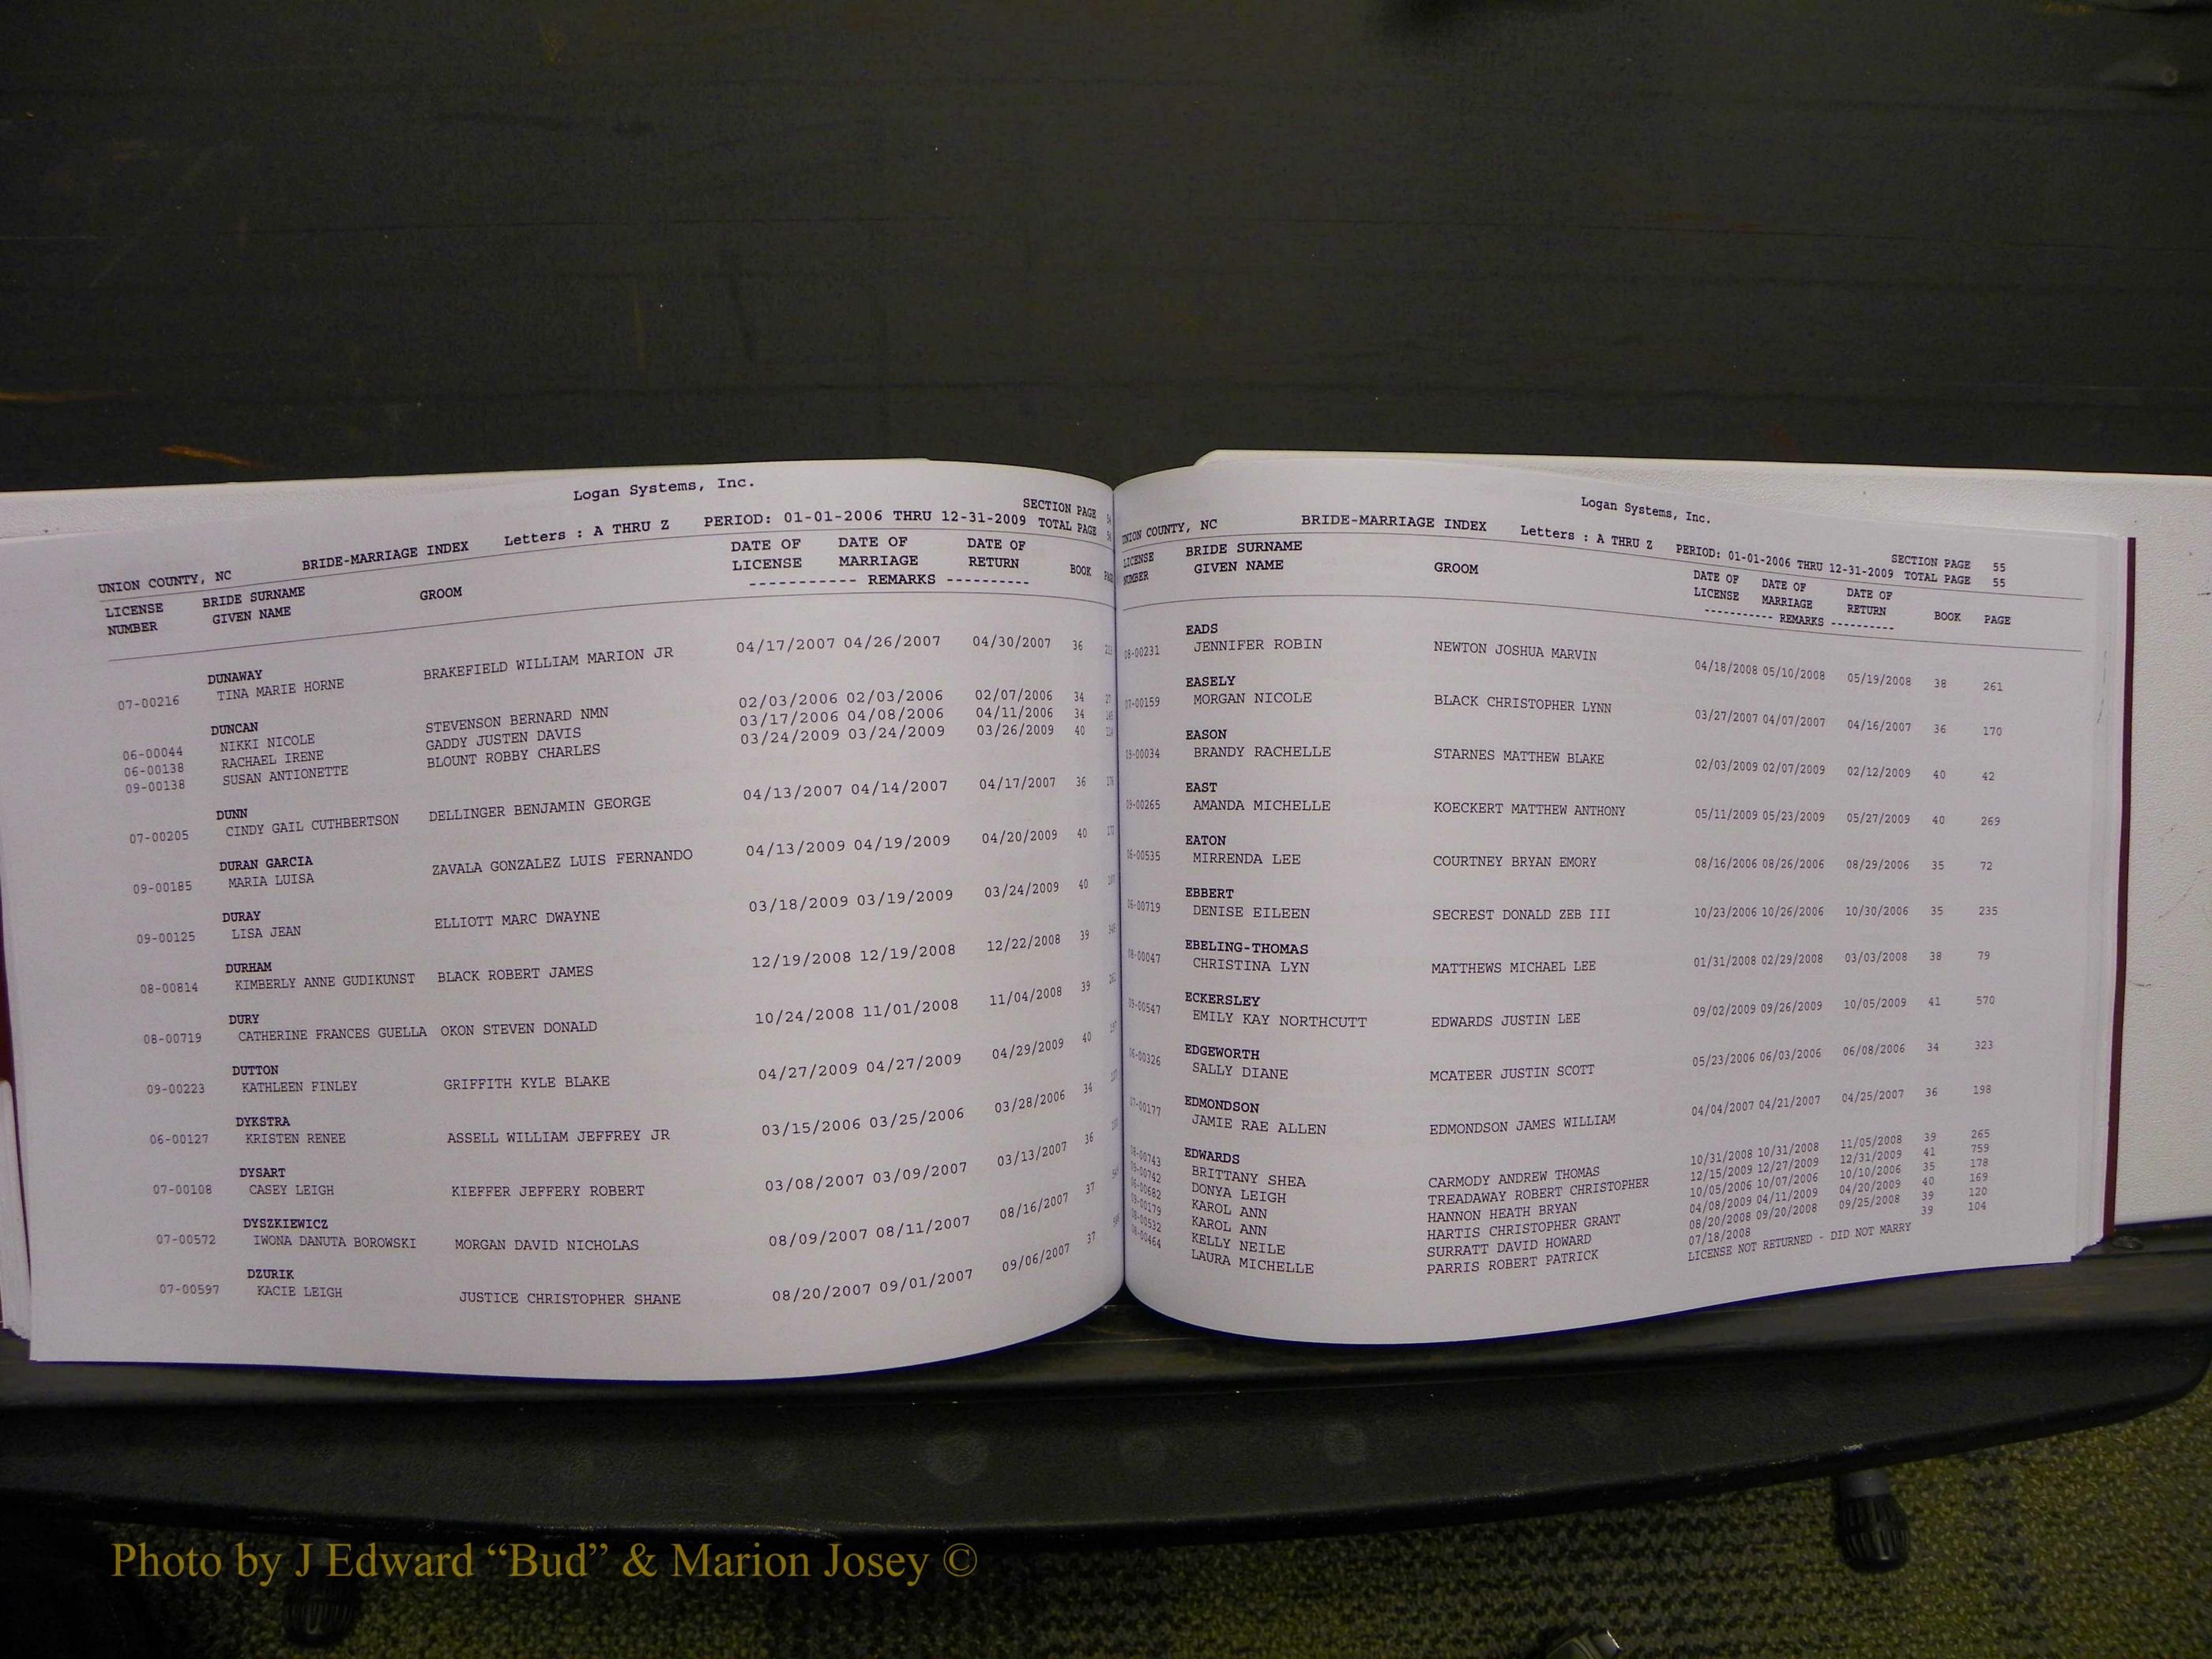 Logan Systems, Inc.
UNION COUNTY, NC BRIDE-MARRIAGE INDEX Letters : A THRU Z PERIOD: 01-01-2006 THRU 12-31-2009 SECTION PAGE
TOTAL PAGE
LICENSE NUMBER BRIDE SURNAME GIVEN NAME GROOM DATE OF LICENSE DATE OF MARRIAGE DATE OF RETURN BOOK
------------ REMARKS ----------
DUNAWAY
07-00216 TINA MARIE HORNE BRAKEFIELD WILLIAM MARION JR 04/17/2007 04/26/2007 04/30/2007 36
DUNCAN
06-00044 NIKKI NICOLE STEVENSON BERNARD NMN 02/03/2006 02/03/2006 02/07/2006 34
06-00138 RACHAEL IRENE GADDY JUSTEN DAVIS 03/17/2006 04/08/2006 04/11/2006 34
09-00138 SUSAN ANTIONETTE BLOUNT ROBBY CHARLES 03/24/2009 03/24/2009 03/26/2009 40
DUNN
07-00205 CINDY GAIL CUTHBERTSON DELLINGER BENJAMIN GEORGE 04/13/2007 04/14/2007 04/17/2007 36
DURAN GARCIA
09-00185 MARIA LUISA ZAVALA GONZALEZ LUIS FERNANDO 04/13/2009 04/19/2009 04/20/2009 40
DURAY
09-00125 LISA JEAN ELLIOTT MARC DWAYNE 03/18/2009 03/19/2009 03/24/2009 40
DURHAM
08-00814 KIMBERLY ANNE GUDIKUNST BLACK ROBERT JAMES 12/19/2008 12/19/2008 12/22/2008 39
DURY
08-00719 CATHERINE FRANCES GUELLA OKON STEVEN DONALD 10/24/2008 11/01/2008 11/04/2008 39
DUTTON
09-00223 KATHLEEN FINLEY GRIFFITH KYLE BLAKE 04/27/2009 04/27/2009 04/29/2009 40
DYKSTRA
06-00127 KRISTEN RENEE ASSELL WILLIAM JEFFREY JR 03/15/2006 03/25/2006 03/28/2006 34
DYSART
07-00108 CASEY LEIGH KIEFFER JEFFERY ROBERT 03/08/2007 03/09/2007 03/13/2007 36
DYSZKIEWICZ
07-00572 IWONA DANUTA BOROWSKI MORGAN DAVID NICHOLAS 08/09/2007 08/11/2007 08/16/2007 37
DZURIK
07-00597 KACIE LEIGH JUSTICE CHRISTOPHER SHANE 08/20/2007 09/01/2007 09/06/2007 37
Logan Systems, Inc.
UNION COUNTY, NC BRIDE-MARRIAGE INDEX Letters : A THRU Z PERIOD: 01-01-2006 THRU 12-31-2009 SECTION PAGE 55
TOTAL PAGE 55
LICENSE NUMBER BRIDE SURNAME GIVEN NAME GROOM DATE OF LICENSE DATE OF MARRIAGE DATE OF RETURN BOOK PAGE
---------- REMARKS ----------
EADS
08-00231 JENNIFER ROBIN NEWTON JOSHUA MARVIN 04/18/2008 05/10/2008 05/19/2008 38 261
EASELY
07-00159 MORGAN NICOLE BLACK CHRISTOPHER LYNN 03/27/2007 04/07/2007 04/16/2007 36 170
EASON
09-00034 BRANDY RACHELLE STARNES MATTHEW BLAKE 02/03/2009 02/07/2009 02/12/2009 40 42
EAST
09-00265 AMANDA MICHELLE KOECKERT MATTHEW ANTHONY 05/11/2009 05/23/2009 05/27/2009 40 269
EATON
06-00535 MIRRENDA LEE COURTNEY BRYAN EMORY 08/16/2006 08/26/2006 08/29/2006 35 72
EBBERT
06-00719 DENISE EILEEN SECREST DONALD ZEB III 10/23/2006 10/26/2006 10/30/2006 35 235
EBELING-THOMAS
08-00047 CHRISTINA LYN MATTHEWS MICHAEL LEE 01/31/2008 02/29/2008 03/03/2008 38 79
ECKERSLEY
09-00547 EMILY KAY NORTHCUTT EDWARDS JUSTIN LEE 09/02/2009 09/26/2009 10/05/2009 41 570
EDGEWORTH
06-00326 SALLY DIANE MCATEER JUSTIN SCOTT 05/23/2006 06/03/2006 06/08/2006 34 323
EDMONDSON
07-00177 JAMIE RAE ALLEN EDMONDSON JAMES WILLIAM 04/04/2007 04/21/2007 04/25/2007 36 198
EDWARDS
08-00743 BRITTANY SHEA CARMODY ANDREW THOMAS 10/31/2008 10/31/2008 11/05/2008 39 265
09-00742 DONYA LEIGH TREADAWAY ROBERT CHRISTOPHER 12/15/2009 12/27/2009 12/31/2009 41 759
06-00682 KAROL ANN HANNON HEATH BRYAN 10/05/2006 10/07/2006 10/10/2006 35 178
09-00179 KAROL ANN HARTIS CHRISTOPHER GRANT 04/08/2009 04/11/2009 04/20/2009 40 169
08-00532 KELLY NEILE SURRATT DAVID HOWARD 08/20/2008 09/20/2008 09/25/2008 39 120
08-00464 LAURA MICHELLE PARRIS ROBERT PATRICK 07/18/2008 39 104
LICENSE NOT RETURNED - DID NOT MARRY
Photo by J Edward “Bud” & Marion Josey ©